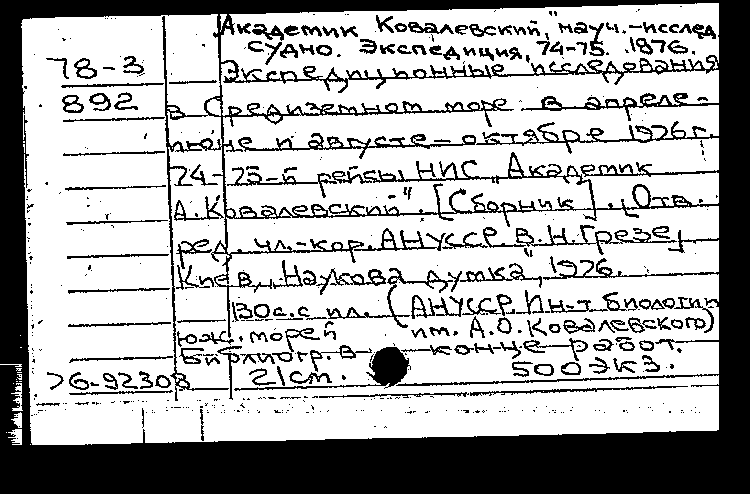 Академик Ковалевский, "науч.-исслед.
судно. Экспедиция, 74-75. 1976.
78-3 Экспедиционные исследования
892 в Средиземном море в апреле-
июне и августе-октябре 1976 г.
74-75-й рейсы НИС "Академик
А. Ковалевский". [Сборник]. [Отв.
ред. чл.-кор. АН УССР В.Н. Грезе]
Киев, "Наукова думка", 1976.
130 с. с ил. (АН УССР. Ин-т биологии
юж. морей им. А.О. Ковалевского)
Библиогр. в конце работ.
76-92308 21 см. 500 экз.